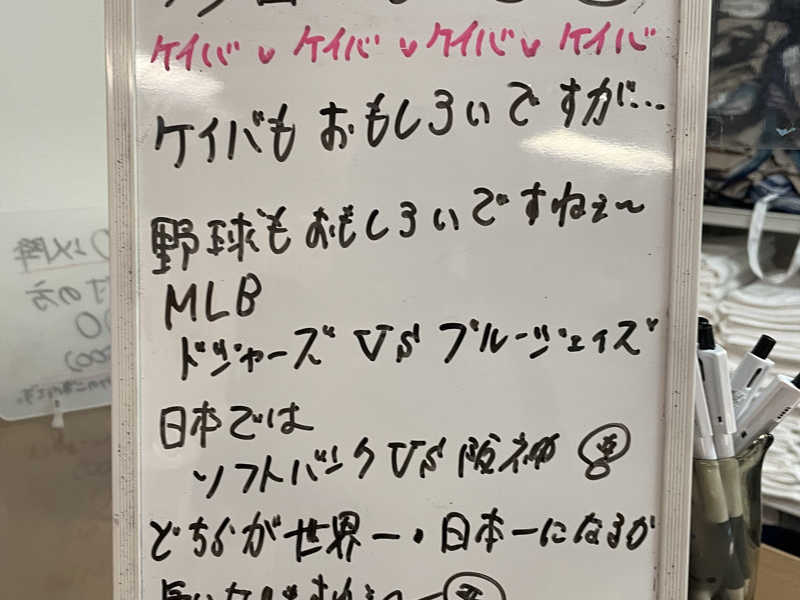 ケイバ ケイバ ケイバ ケイバ
ケイバも おもしろいですが…
野球もおもしろいですねぇ〜
MLB
ドジャーズ VS ブルージェイズ
日本では
ソフトバンク VS 阪神
どちらが世界一・日本一になるか
以降
の方